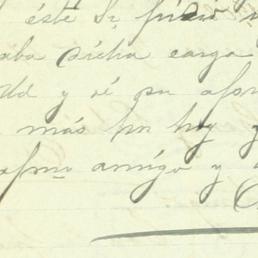 éste Sr. fució
aba dicha carga
Ud y sé su afo
más por hoy y
afmo amigo y